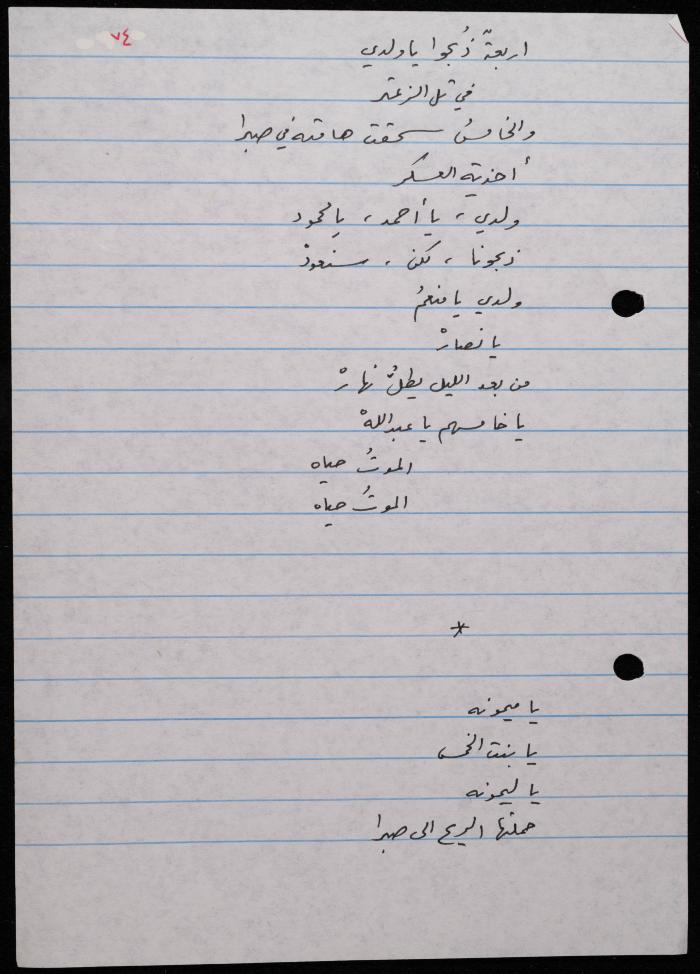 ٧٤
اربعةٌ ذُبحوا يا ولدي
في تل الزعتر
والخامسُ سحقت هامته في صبرا
أخذته العسكر
ولدي ، يا أحمد ، يا محمود
ذبحونا ، لكن ، سنعودْ
ولدي يا منعمُ
يا نصارْ
من بعد الليل يطلُّ نهارْ
يا خامسهم يا عبداللهْ
الموتُ حياه
الموتُ حياه
*
يا ميمونه
يا بنت الخمس
يا ليمونه
حملتها الريح الى صبرا